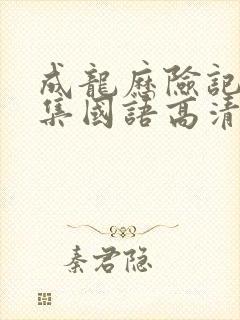 成龍歷險記
集國語高清
秦君隐